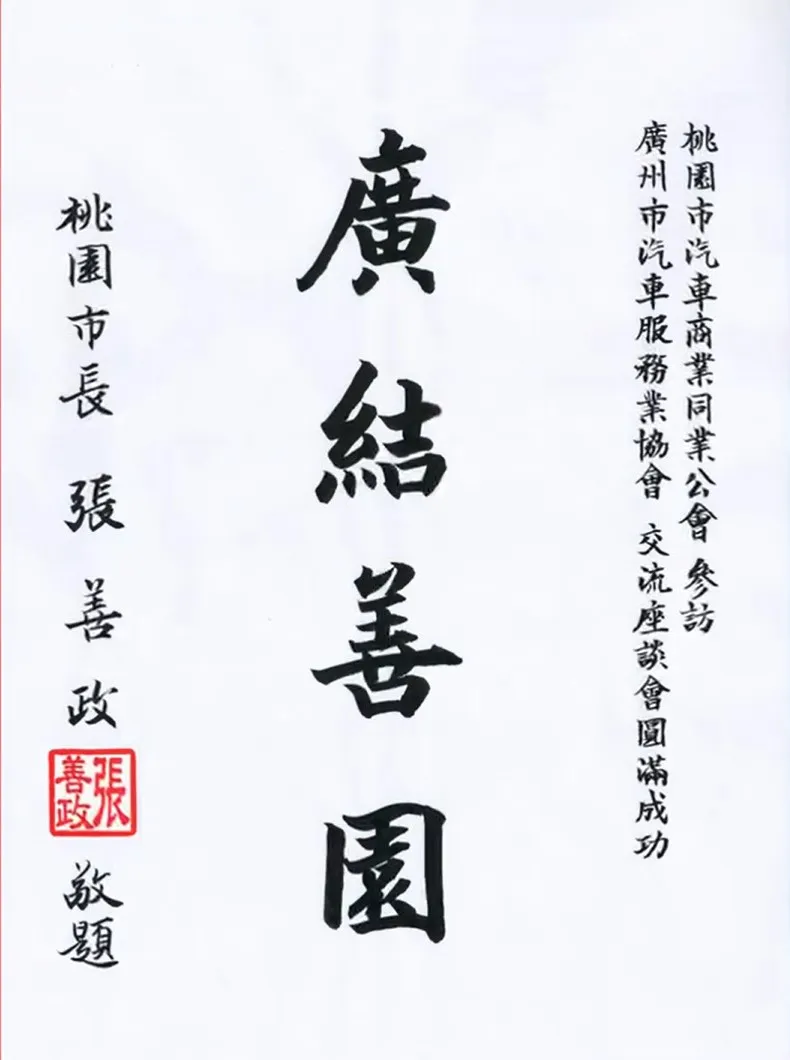 桃園市汽車商業同業公會 參訪
廣州市汽車服務業協會 交流座談會圓滿成功
廣結善園
桃園市長 張善政
張善政
敬題